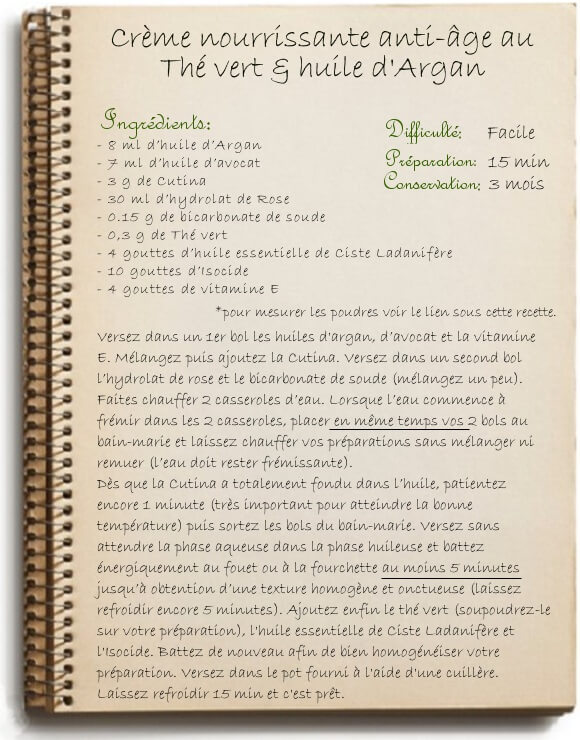 Crème nourrissante anti-âge au
Thé vert & huile d'Argan
Ingrédients:
- 8 ml d'huile d'Argan
- 7 ml d'huile d'avocat
- 3 g de Cutina
- 30 ml d'hydrolat de Rose
- 0.15 g de bicarbonate de soude
- 0,3 g de Thé vert
- 4 gouttes d'huile essentielle de Ciste Ladanifère
- 10 gouttes d'Isocide
- 4 gouttes de vitamine E
Difficulté: Facile
Préparation: 15 min
Conservation: 3 mois
*pour mesurer les poudres voir le lien sous cette recette.
Versez dans un 1er bol les huiles d'argan, d'avocat et la vitamine
E. Mélangez puis ajoutez la Cutina. Versez dans un second bol
l'hydrolat de rose et le bicarbonate de soude (mélangez un peu).
Faites chauffer 2 casseroles d'eau. Lorsque l'eau commence à
frémir dans les 2 casseroles, placer en même temps vos 2 bols au
bain-marie et laissez chauffer vos préparations sans mélanger ni
remuer (l'eau doit rester frémissante).
Dès que la Cutina a totalement fondu dans l'huile, patientez
encore 1 minute (très important pour atteindre la bonne
température) puis sortez les bols du bain-marie. Versez sans
attendre la phase aqueuse dans la phase huileuse et battez
énergiquement au fouet ou à la fourchette au moins 5 minutes
jusqu'à obtention d'une texture homogène et onctueuse (laissez
refroidir encore 5 minutes). Ajoutez enfin le thé vert (soupoudrez-le
sur votre préparation), l'huile essentielle de Ciste Ladanifère et
l'Isocide. Battez de nouveau afin de bien homogénéiser votre
préparation. Versez dans le pot fourni à l'aide d'une cuillère.
Laissez refroidir 15 min et c'est prêt.